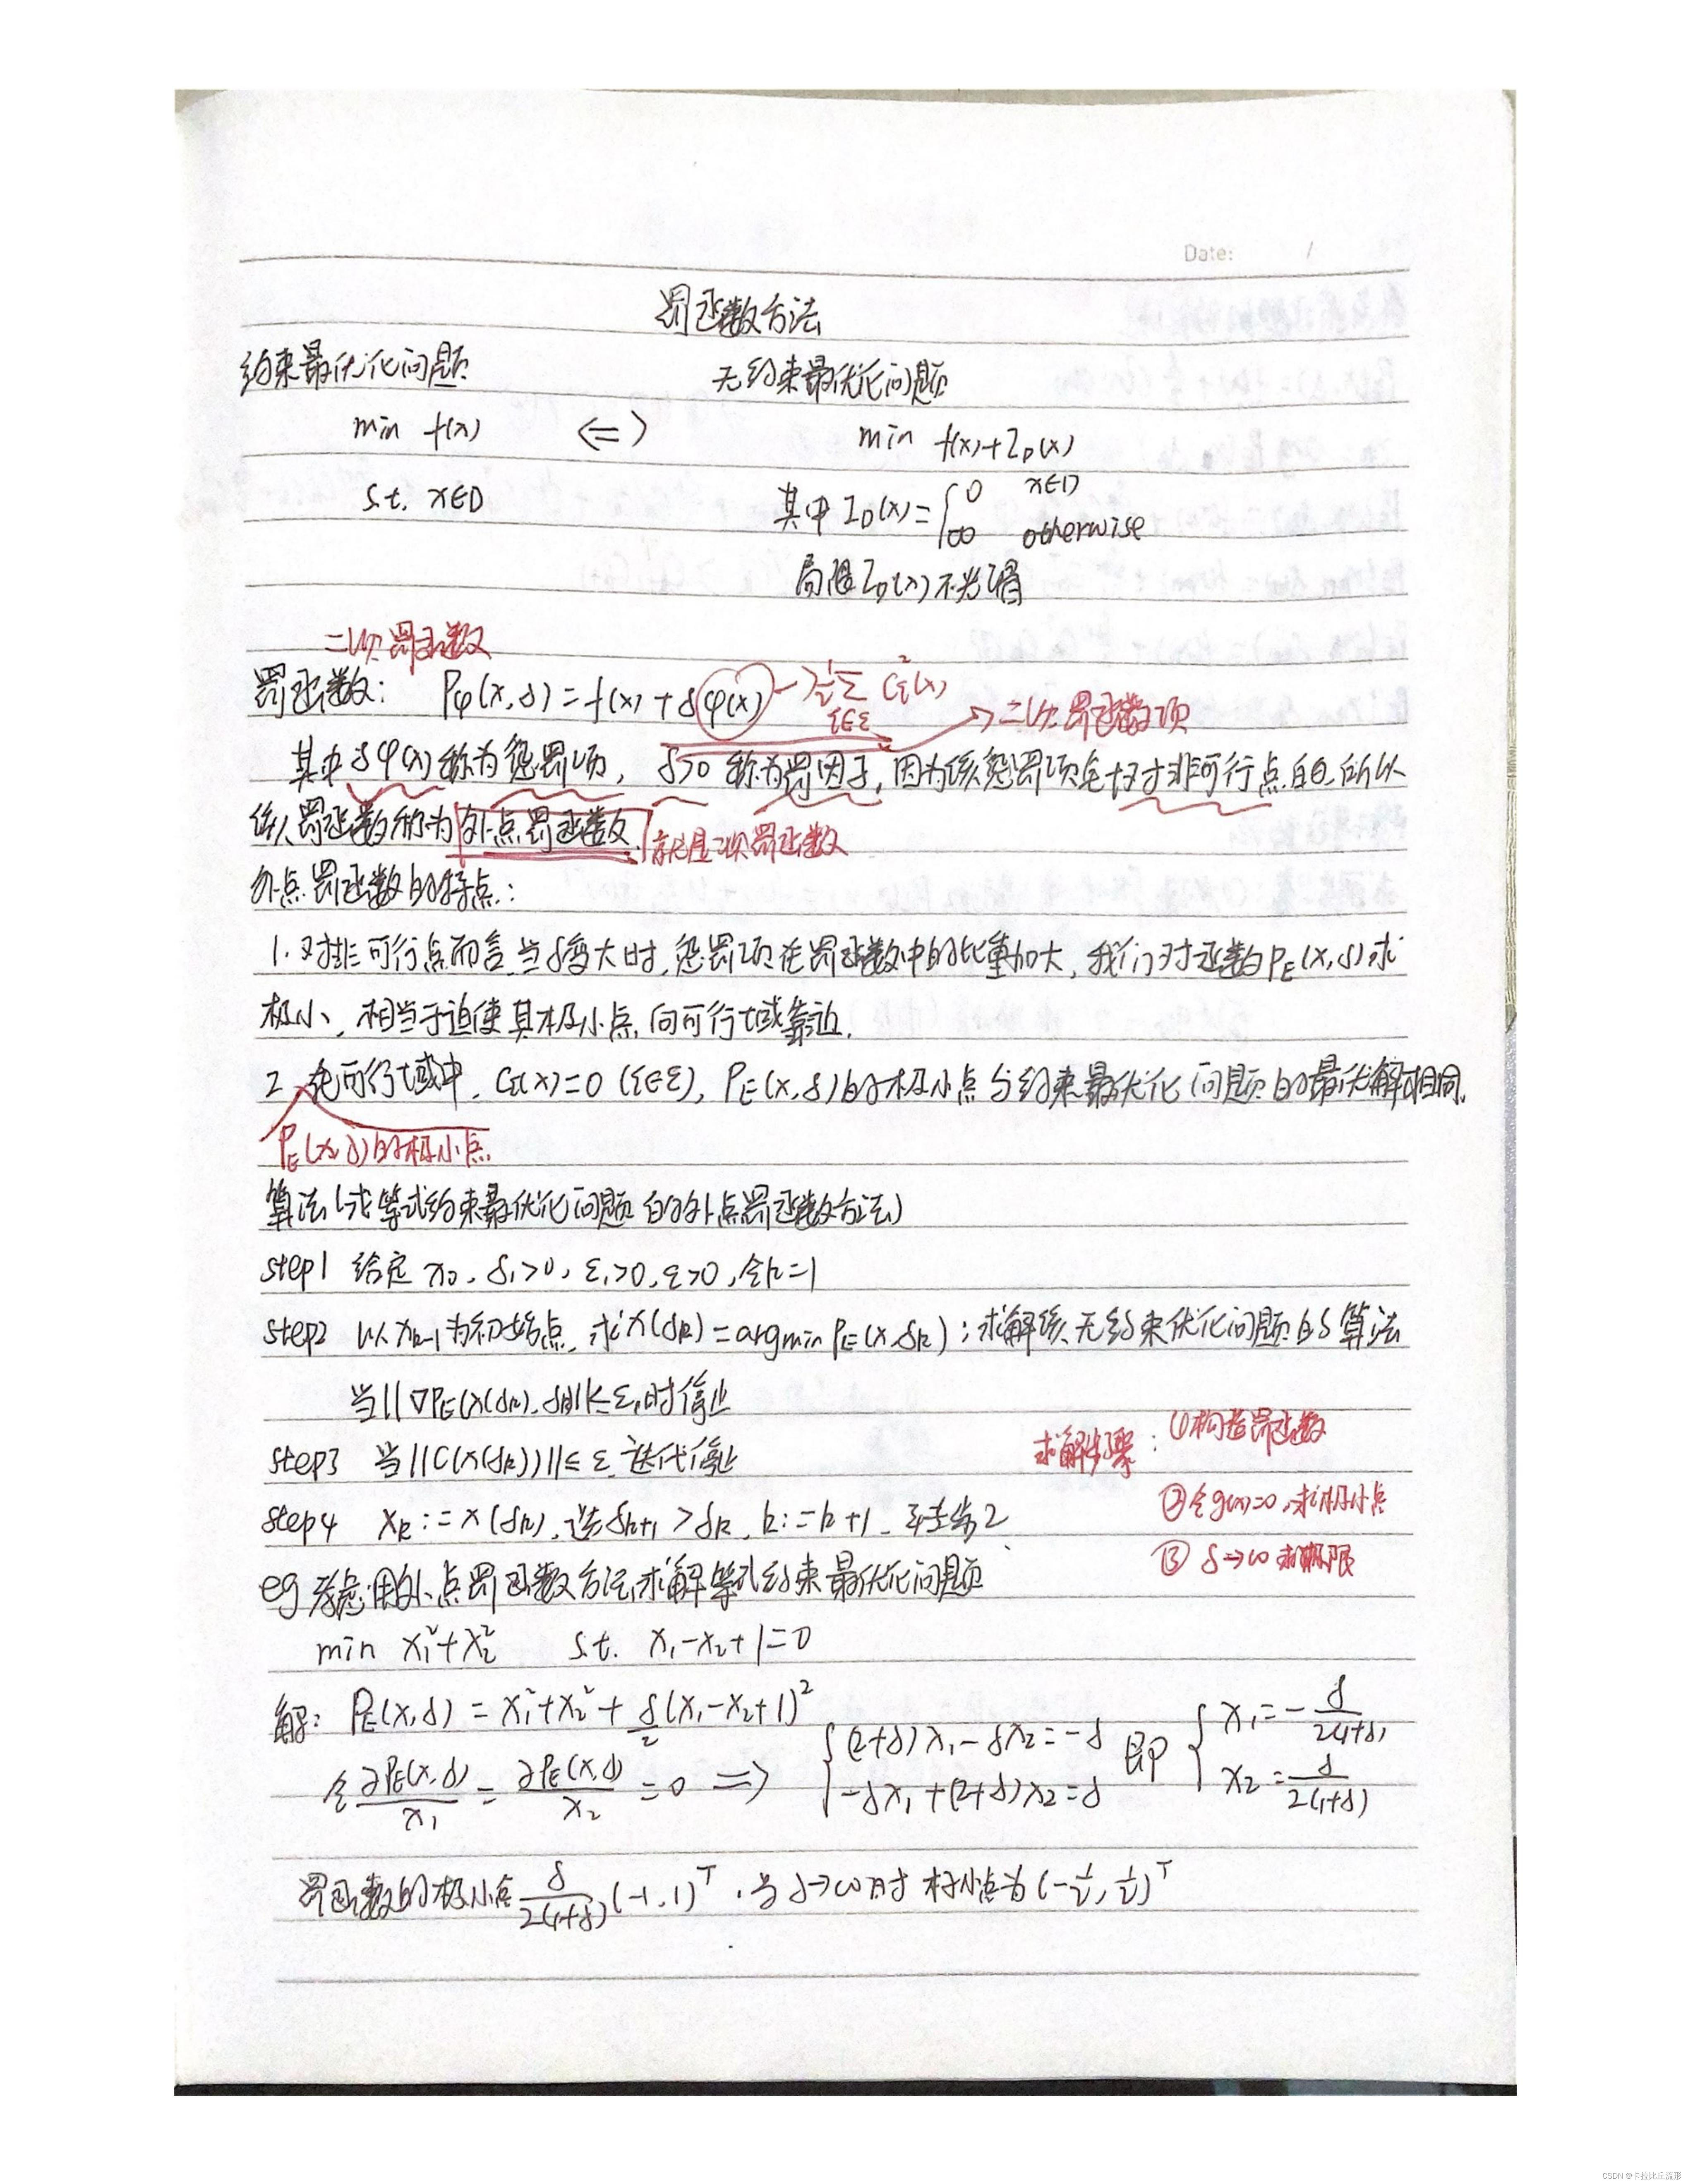 Date: /
罚函数方法
约束最优化问题 无约束最优化问题
min f(x) <=> min f(x)+I_D(x)
s.t. x∈D 其中 I_D(x)={0 x∈D
∞ otherwise
局限 I_D(x)不光滑
二次罚函数
罚函数: Pφ(x,δ)=f(x)+δφ(x) → ½∑_{i∈ε} c_i²(x)
→二次罚函数项
其中δφ(x)称为惩罚项, δ>0 称为罚因子, 因为该惩罚项是对非可行点的, 所以
该罚函数称为外点罚函数. 就是二次罚函数
外点罚函数的特点:
1. 对非可行点而言, 当δ变大时, 惩罚项在罚函数中的比重加大, 我们对函数P_E(x,δ)求
极小, 相当于迫使其极小点向可行域靠近.
2. 在可行域中, c_i(x)=0 (i∈ε), P_E(x,δ)的极小点与约束最优化问题的最优解相同.
P_E(x,δ)的极小点
算法(求等式约束最优化问题的外点罚函数方法)
step1 给定 x₀, δ₁>0, ε₁>0, ε>0, 令k=1
step2 以x_{k-1}为初始点, 求x(δ_k)=argmin P_E(x,δ_k); 求解该无约束优化问题的算法
当||∇P_E(x(δ_k),δ_k)||≤ε₁时停止
step3 当||C(x(δ_k))||≤ε 迭代停止
求解步骤: ①构造罚函数
②令g(x)=0, 求极小点
③ δ→∞ 求极限
step4 x_k:=x(δ_k), 选δ_{k+1}>δ_k, k:=k+1, 转步2
eg 考虑用外点罚函数方法求解等式约束最优化问题
min x₁²+x₂² s.t. x₁-x₂+1=0
解: P_E(x,δ)=x₁²+x₂²+δ/2(x₁-x₂+1)²
令 ∂P_E(x,δ)/x₁ = ∂P_E(x,δ)/x₂ =0 => {(2+δ)x₁-δx₂=-δ
-δx₁+(2+δ)x₂=δ 即 {x₁=-δ/2(1+δ)
x₂=δ/2(1+δ)
罚函数的极小点 δ/2(1+δ) (-1,1)ᵀ, 当δ→∞时 极小点为(-½,½)ᵀ
CSDN @卡拉比丘流形